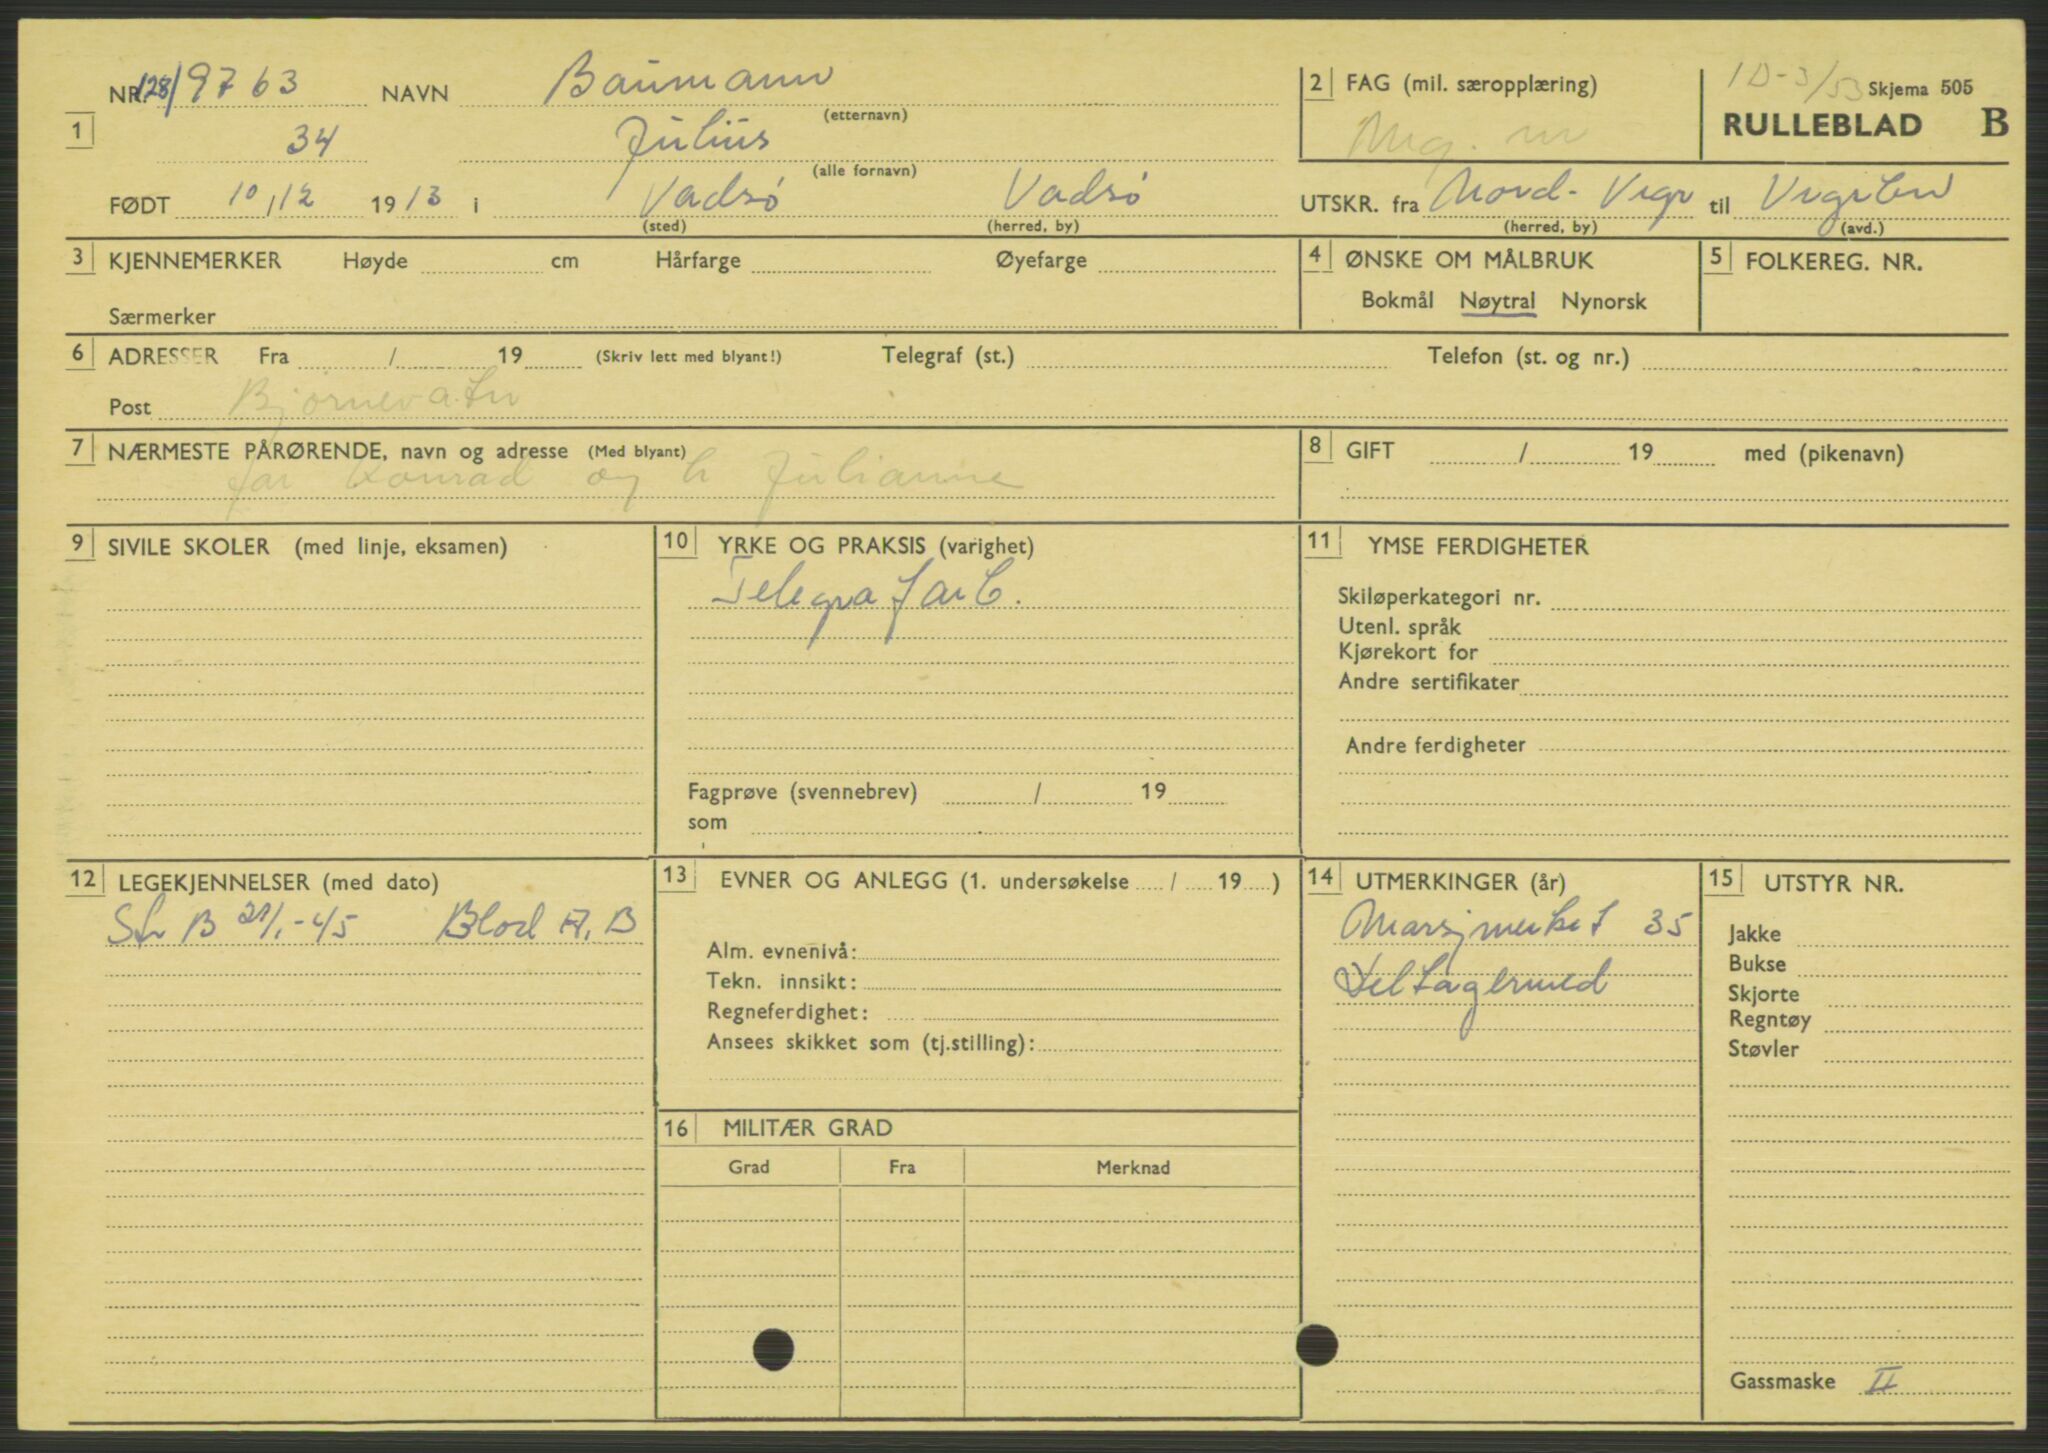 NR. 128/9763 NAVN Baumann
(etternavn)
1
34 Julius
(alle fornavn)
FØDT 10/12 1913 i Vadsø Vadsø
(sted) (herred, by)
2 FAG (mil. særopplæring)
Mg. m
1D-3/53 Skjema 505
RULLEBLAD B
UTSKR. fra Nord-Vrgr til
(herred, by) (avd.)
3 KJENNEMERKER Høyde cm Hårfarge Øyefarge
Særmerker
4 ØNSKE OM MÅLBRUK
Bokmål Nøytral Nynorsk
5 FOLKEREG. NR.
6 ADRESSER Fra / 19 (Skriv lett med blyant!) Telegraf (st.) Telefon (st. og nr.)
Post Bjørnevatn
7 NÆRMESTE PÅRØRENDE, navn og adresse (Med blyant)
far Konrad og h Julianne
8 GIFT / 19 med (pikenavn)
9 SIVILE SKOLER (med linje, eksamen)
10 YRKE OG PRAKSIS (varighet)
Telegrafarb.
Fagprøve (svennebrev) / 19
som
11 YMSE FERDIGHETER
Skiløperkategori nr.
Utenl. språk
Kjørekort for
Andre sertifikater
Andre ferdigheter
12 LEGEKJENNELSER (med dato)
B 21/1-45 Blod A, B
13 EVNER OG ANLEGG (1. undersøkelse / 19 )
Alm. evnenivå:
Tekn. innsikt:
Regneferdighet:
Ansees skikket som (tj.stilling):
14 UTMERKINGER (år)
Marsjmerket 35
Deltagermed
15 UTSTYR NR.
Jakke
Bukse
Skjorte
Regntøy
Støvler
Gassmaske II
16 MILITÆR GRAD
Grad Fra Merknad